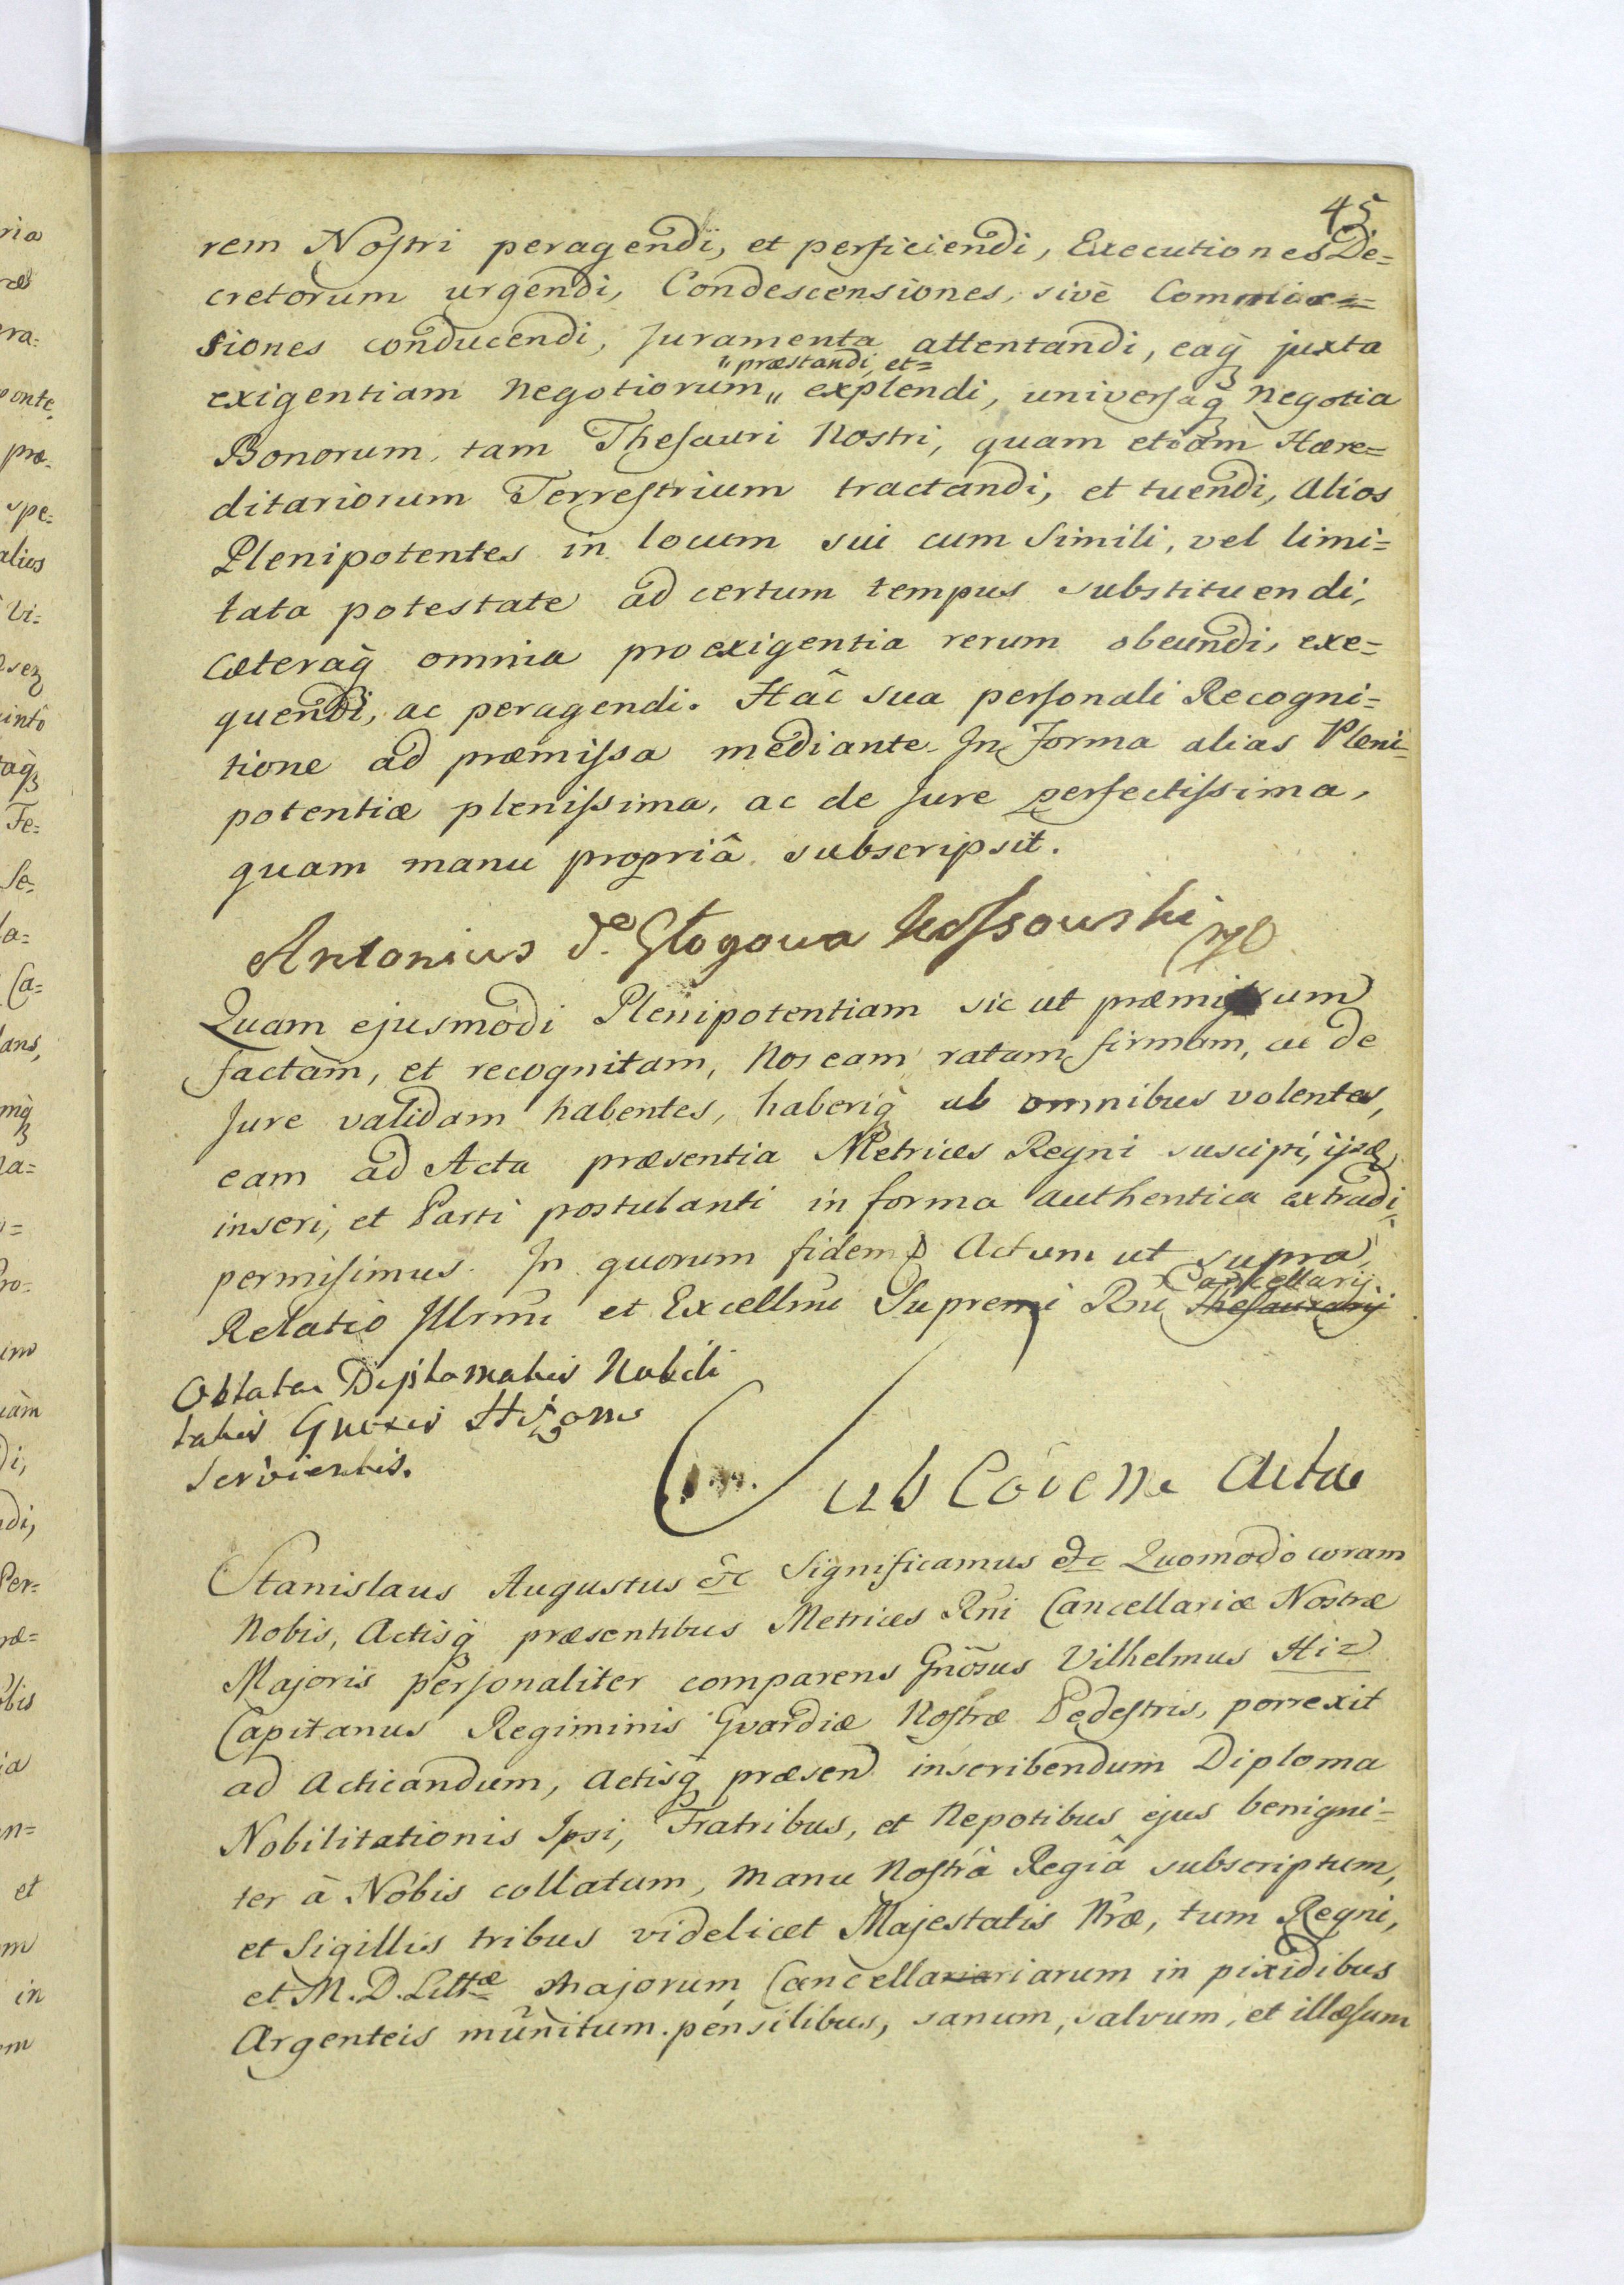 45
rem Nostri peragendi, et perficiendi, Executiones De=
cretorum urgendi, Condescensiones, sive Commis=
siones conducendi, Juramenta attentandi, eaq̃ juxta
"præstandi, et=
exigentiam Negotiorum" explendi, universaq̃ Negotia
Bonorum, tam Thesauri Nostri, quam etiam Hære=
ditariorum Terrestrium tractandi, et tuendi, alios
Plenipotentes in locum sui cum simili, vel limi=
tata potestate ad certum tempus substituendi,
cæteraq̃ omnia pro exigentia rerum obeundi, exe=
quendi, ac peragendi. Hâc sua personali Recogni=
tione ad præmissa mediante. In Forma alias Pleni=
potentiæ plenissima, ac de Jure perfectissima,
quam manu propriâ subscripsit.
Antonius de Głogowa Kossowski mp
Quam ejusmodi Plenipotentiam sic ut præmissum
factam, et recognitam, Nos eam ratam, firmam, ac de
Jure validam habentes, haberiq̃ ab omnibus volentes,
eam ad Acta præsentia Metrices Regni suscipi, ijsq̃
inseri, et Parti postulanti in forma authentica extradi,
permisimus. In quorum fidem Actum ut supra,
Cancellarij
Relatio Illrmi et Excellmi Supremi Rni Thesaurarij
Oblata Diplomatis Nobili
tatis Gneroso Hiz oms
servientis.
Sub Coîene Actu
Stanislaus Augustus &c Significamus &c Quomodo coram
Nobis, Actisq̃ præsentibus Metrices Rñi Cancellariæ Nostræ
Majoris personaliter comparens Gñosus Vilhelmus Hiz
Capitanus Regiminis Gvardiæ Nostræ Pedestris, porrexit
ad Acticandum, Actisq̃ præsen inscribendum Diploma
Nobilitationis Ipsi, Fratribus, et Nepotibus ejus benigni=
ter à Nobis collatum, manu Nostrâ Regiâ subscriptum,
et Sigillis tribus videlicet Majestatis Nræ, tum Regni,
et M. D. Littæ Majorum Cancellariariarum in pixidibus
Argenteis munitum pensilibus, sanum, salvum, et illæsum